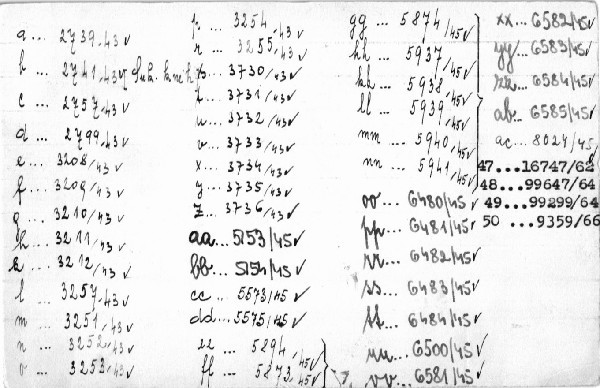 a... 2739/43 ✓
b ... 2741/43 ✓
c ... 2757/43 ✓
d ... 2799/43 ✓
e... 3208/43 ✓
f... 3209/43 ✓
g... 3210/43 ✓
h... 3211/43 ✓
k... 3212/43 ✓
l ... 3257/43 ✓
m ... 3251/43 ✓
n ... 3252/43 ✓
o ... 3253/43 ✓
p... 3254/43 ✓
r ... 3255/43 ✓
s... 3730/43 ✓
t... 3731/43 ✓
u... 3732/43 ✓
v... 3733/43 ✓
x... 3734/43 ✓
y... 3735/43 ✓
z... 3736/43 ✓
aa...5153/45 ✓
bb... 5154/45 ✓
cc ... 5573/45 ✓
dd...5575/45 ✓
ee ... 5294/45 ✓
ff ... 5873/45 ✓
gg ... 5874/45 ✓
hh ... 5937/45 ✓
kk... 5938/45 ✓
ll ... 5939/45 ✓
mm ... 5940/45 ✓
nn ... 5941/45 ✓
oo ... 6480/45 ✓
pp... 6481/45 ✓
rr... 6482/45 ✓
ss... 6483/45 ✓
tt... 6484/45 ✓
uu... 6500/45 ✓
vv... 6581/45 ✓
xx... 6582/45 ✓
yy... 6583/45 ✓
zz... 6584/45 ✓
ab... 6585/45 ✓
ac... 8024/45 ✓
47...16747/62
48...99647/64
49...99299/64
50 ...9359/66